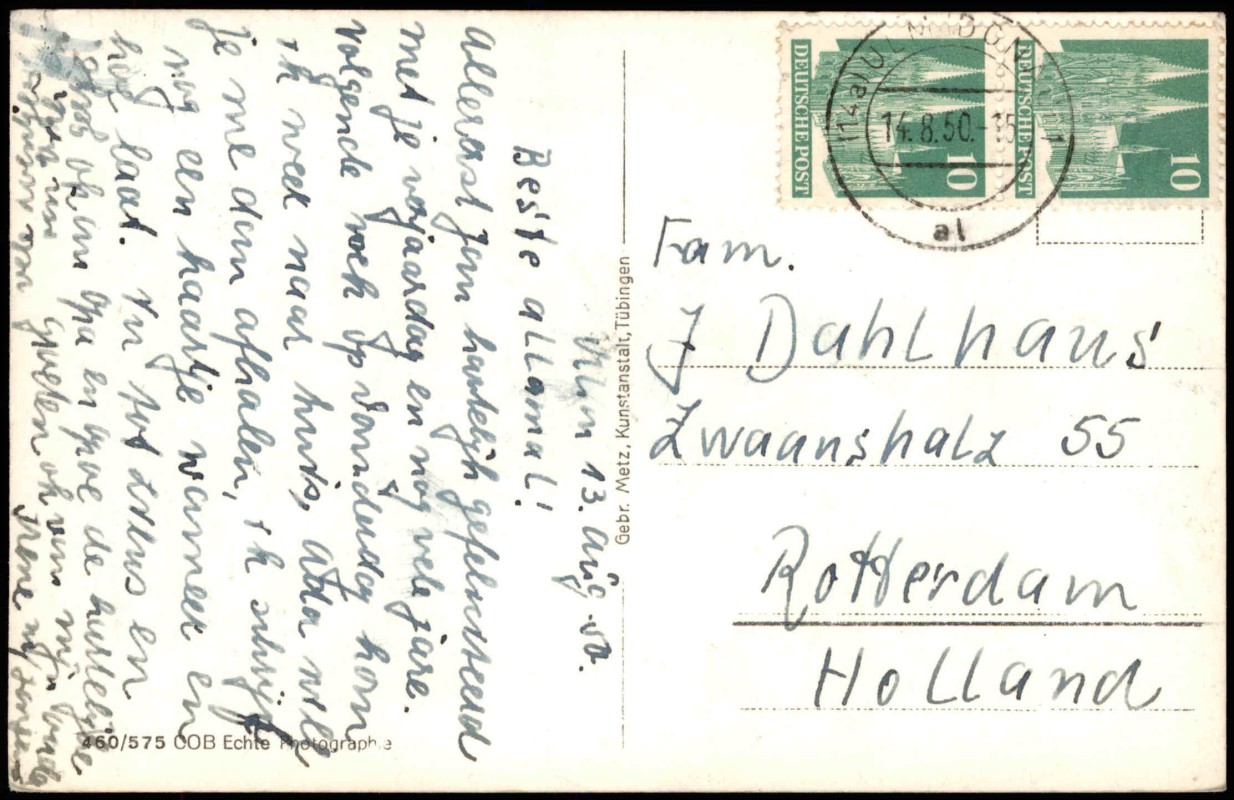 Ulm 13. Aug. 50.
Beste allemal!
Allereerst Jan hartelijk gefeliciteerd
met je verjaardag en nog vele jare.
volgende week op Donderdag kom
ik weer naar huis,
je me dan afhalen, ik schrijf
nog een kaartje wanneer en
hoe laat. tot ziens en
ook aan Opa en de hartelijke
groeten ook van mijn
460/575 COB Echte Photographie
Gebr. Metz, Kunstanstalt, Tübingen
DEUTSCHE POST
10
DEUTSCHE POST
10
(14a) ULM (DONAU) 1
14.8.50.-15
al
Fam.
J Dahlhaus
Zwaanshalz 55
Rotterdam
Holland